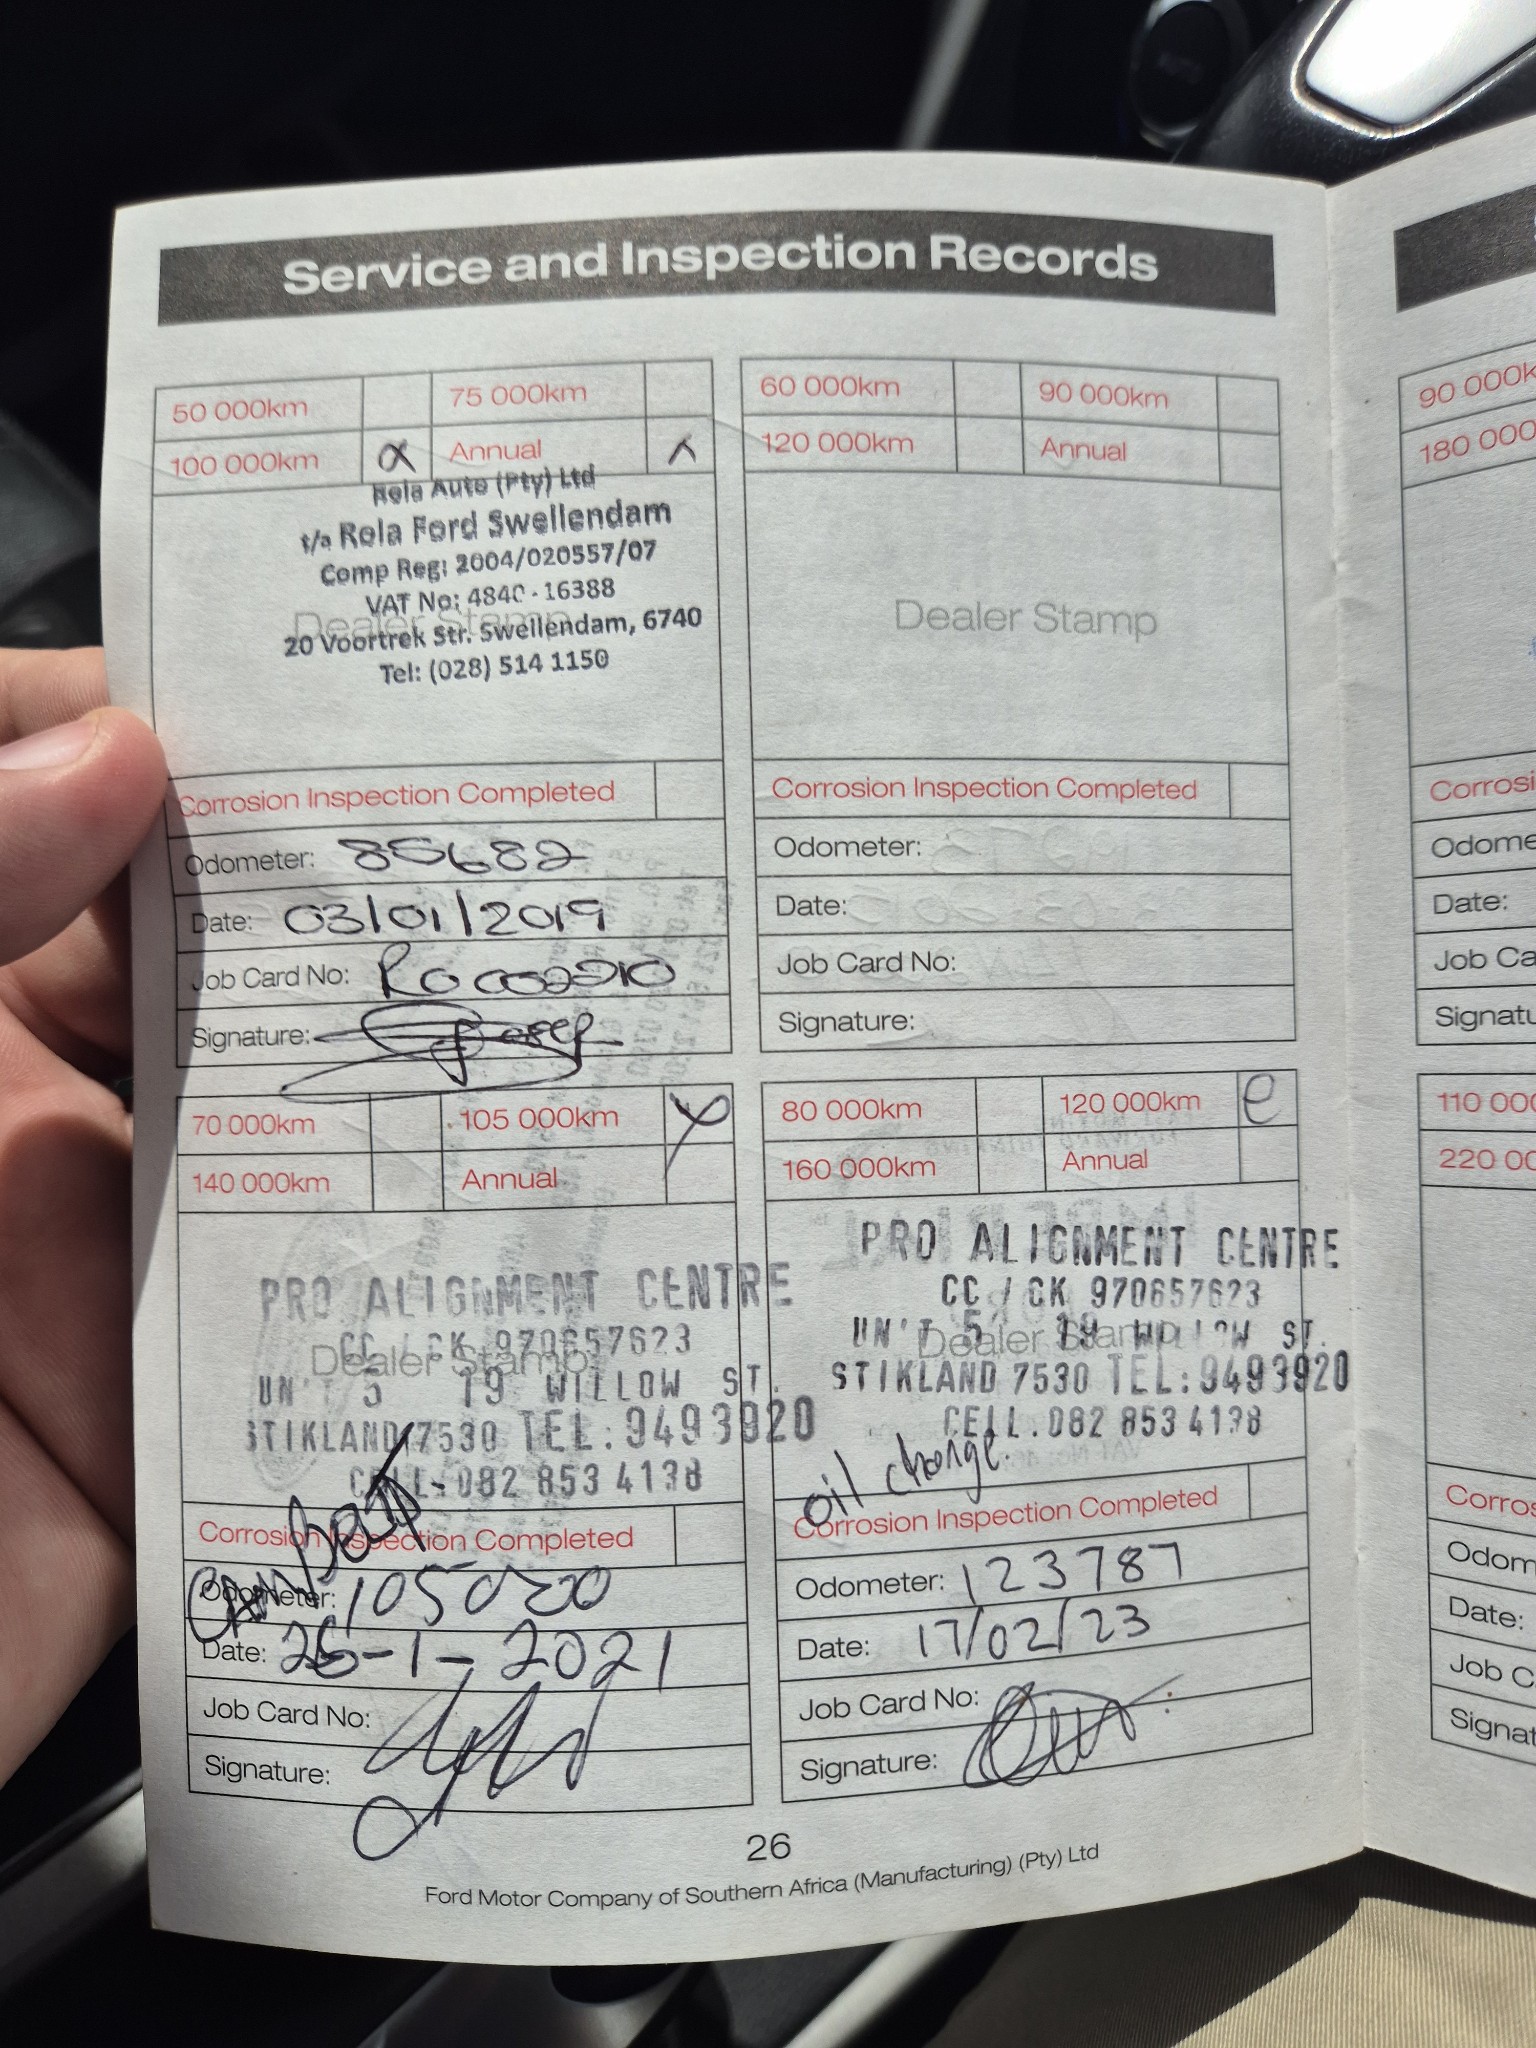 Service and Inspection Records
50 000km 75 000km
100 000km Annual
Rela Auto (Pty) Ltd
t/a Rola Ford Swellendam
Comp Reg: 2004/020557/07
VAT No: 4840 - 16388
Dealer Stamp
20 Voortrek Str. Swellendam, 6740
Tel: (028) 514 1150
Corrosion Inspection Completed
Odometer: 85682
Date: 03/01/2019
Job Card No:
Signature:
60 000km 90 000km
120 000km Annual
Dealer Stamp
Corrosion Inspection Completed
Odometer:
Date:
Job Card No:
Signature:
70 000km 105 000km
140 000km Annual
PRO ALIGNMENT CENTRE
CC / CK 970657623
Dealer Stamp
UN'T 5 19 WILLOW ST.
STIKLAND 7530 TEL: 9493920
CELL. 082 853 4138
Corrosion Inspection Completed
Odometer: 105020
Date: 26-1-2021
Job Card No:
Signature:
80 000km 120 000km
160 000km Annual
PRO ALIGNMENT CENTRE
CC / CK 970657623
UN'T 5 19 WILLOW ST.
Dealer Stamp
STIKLAND 7530 TEL: 9493920
CELL. 082 853 4138
oil change.
Corrosion Inspection Completed
Odometer: 123787
Date: 17/02/23
Job Card No:
Signature:
26
Ford Motor Company of Southern Africa (Manufacturing) (Pty) Ltd
90 000k
180 000
Corrosi
Odome
Date:
Job Ca
Signatu
110 000
220 00
Corros
Odom
Date:
Job C
Signat